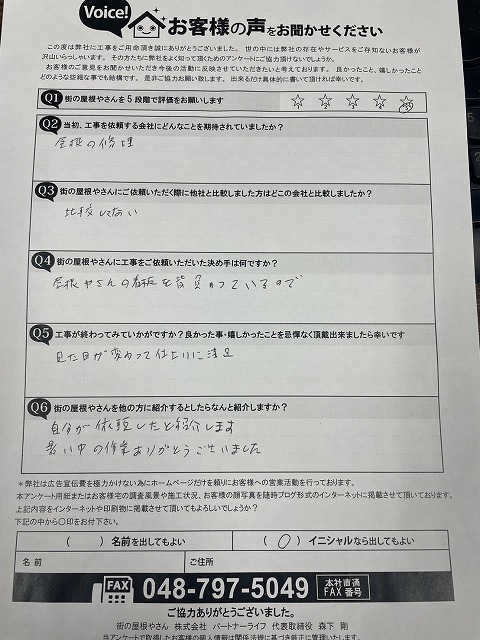 Voice!
お客様の声をお聞かせください
この度は弊社に工事をご用命頂き誠にありがとうございました。 世の中には弊社の存在やサービスをご存知ないお客様が
沢山いらっしゃいます。 その方たちに弊社をよく知って頂くためのアンケートにご協力頂けないでしょうか。
お客様のご意見をお聞かせいただき今後の活動に反映させていただきたいと考えております。 良かったこと、嬉しかったこと
どのような些細な事でも結構です。 是非ご協力お願い致します。 出来るだけ具体的に書いて頂ければ幸いです。
Q1 街の屋根やさんを5段階で評価をお願いします ☆ ☆ ☆ ☆ ☆
Q2 当初、工事を依頼する会社にどんなことを期待されていましたか?
屋根の修理
Q3 街の屋根やさんにご依頼いただく際に他社と比較しました方はどこの会社と比較しましたか?
比較してない
Q4 街の屋根やさんに工事をご依頼いただいた決め手は何ですか?
屋根やさんの看板を背負っているので
Q5 工事が終わってみていかがですか?良かった事・嬉しかったことを忌憚なく頂戴出来ましたら幸いです
見た目が変わって仕上りに満足
Q6 街の屋根やさんを他の方に紹介するとしたらなんと紹介しますか?
自分が依頼したと紹介します
暑い中の作業ありがとうございました
*弊社は広告宣伝費を極力かけない為にホームページだけを頼りにお客様への営業活動を行っております。
本アンケート用紙またはお客様宅の調査風景や施工状況、お客様の顔写真を随時ブログ形式のインターネットに掲載させて頂いております。
上記内容をインターネットや印刷物に掲載させて頂いてもよろしいでしょうか?
下記の中から〇印をお付下さい。
( ) 名前を出してもよい ( ○ ) イニシャルなら出してもよい
名 前 ご住所
FAX 048-797-5049 本社直通 FAX 番号
ご協力ありがとうございました。
街の屋根やさん 株式会社 パートナーライフ 代表取締役 森下 剛
当アンケートで取得したお客様の個人情報は関係法規に基づき厳正に管理いたします。